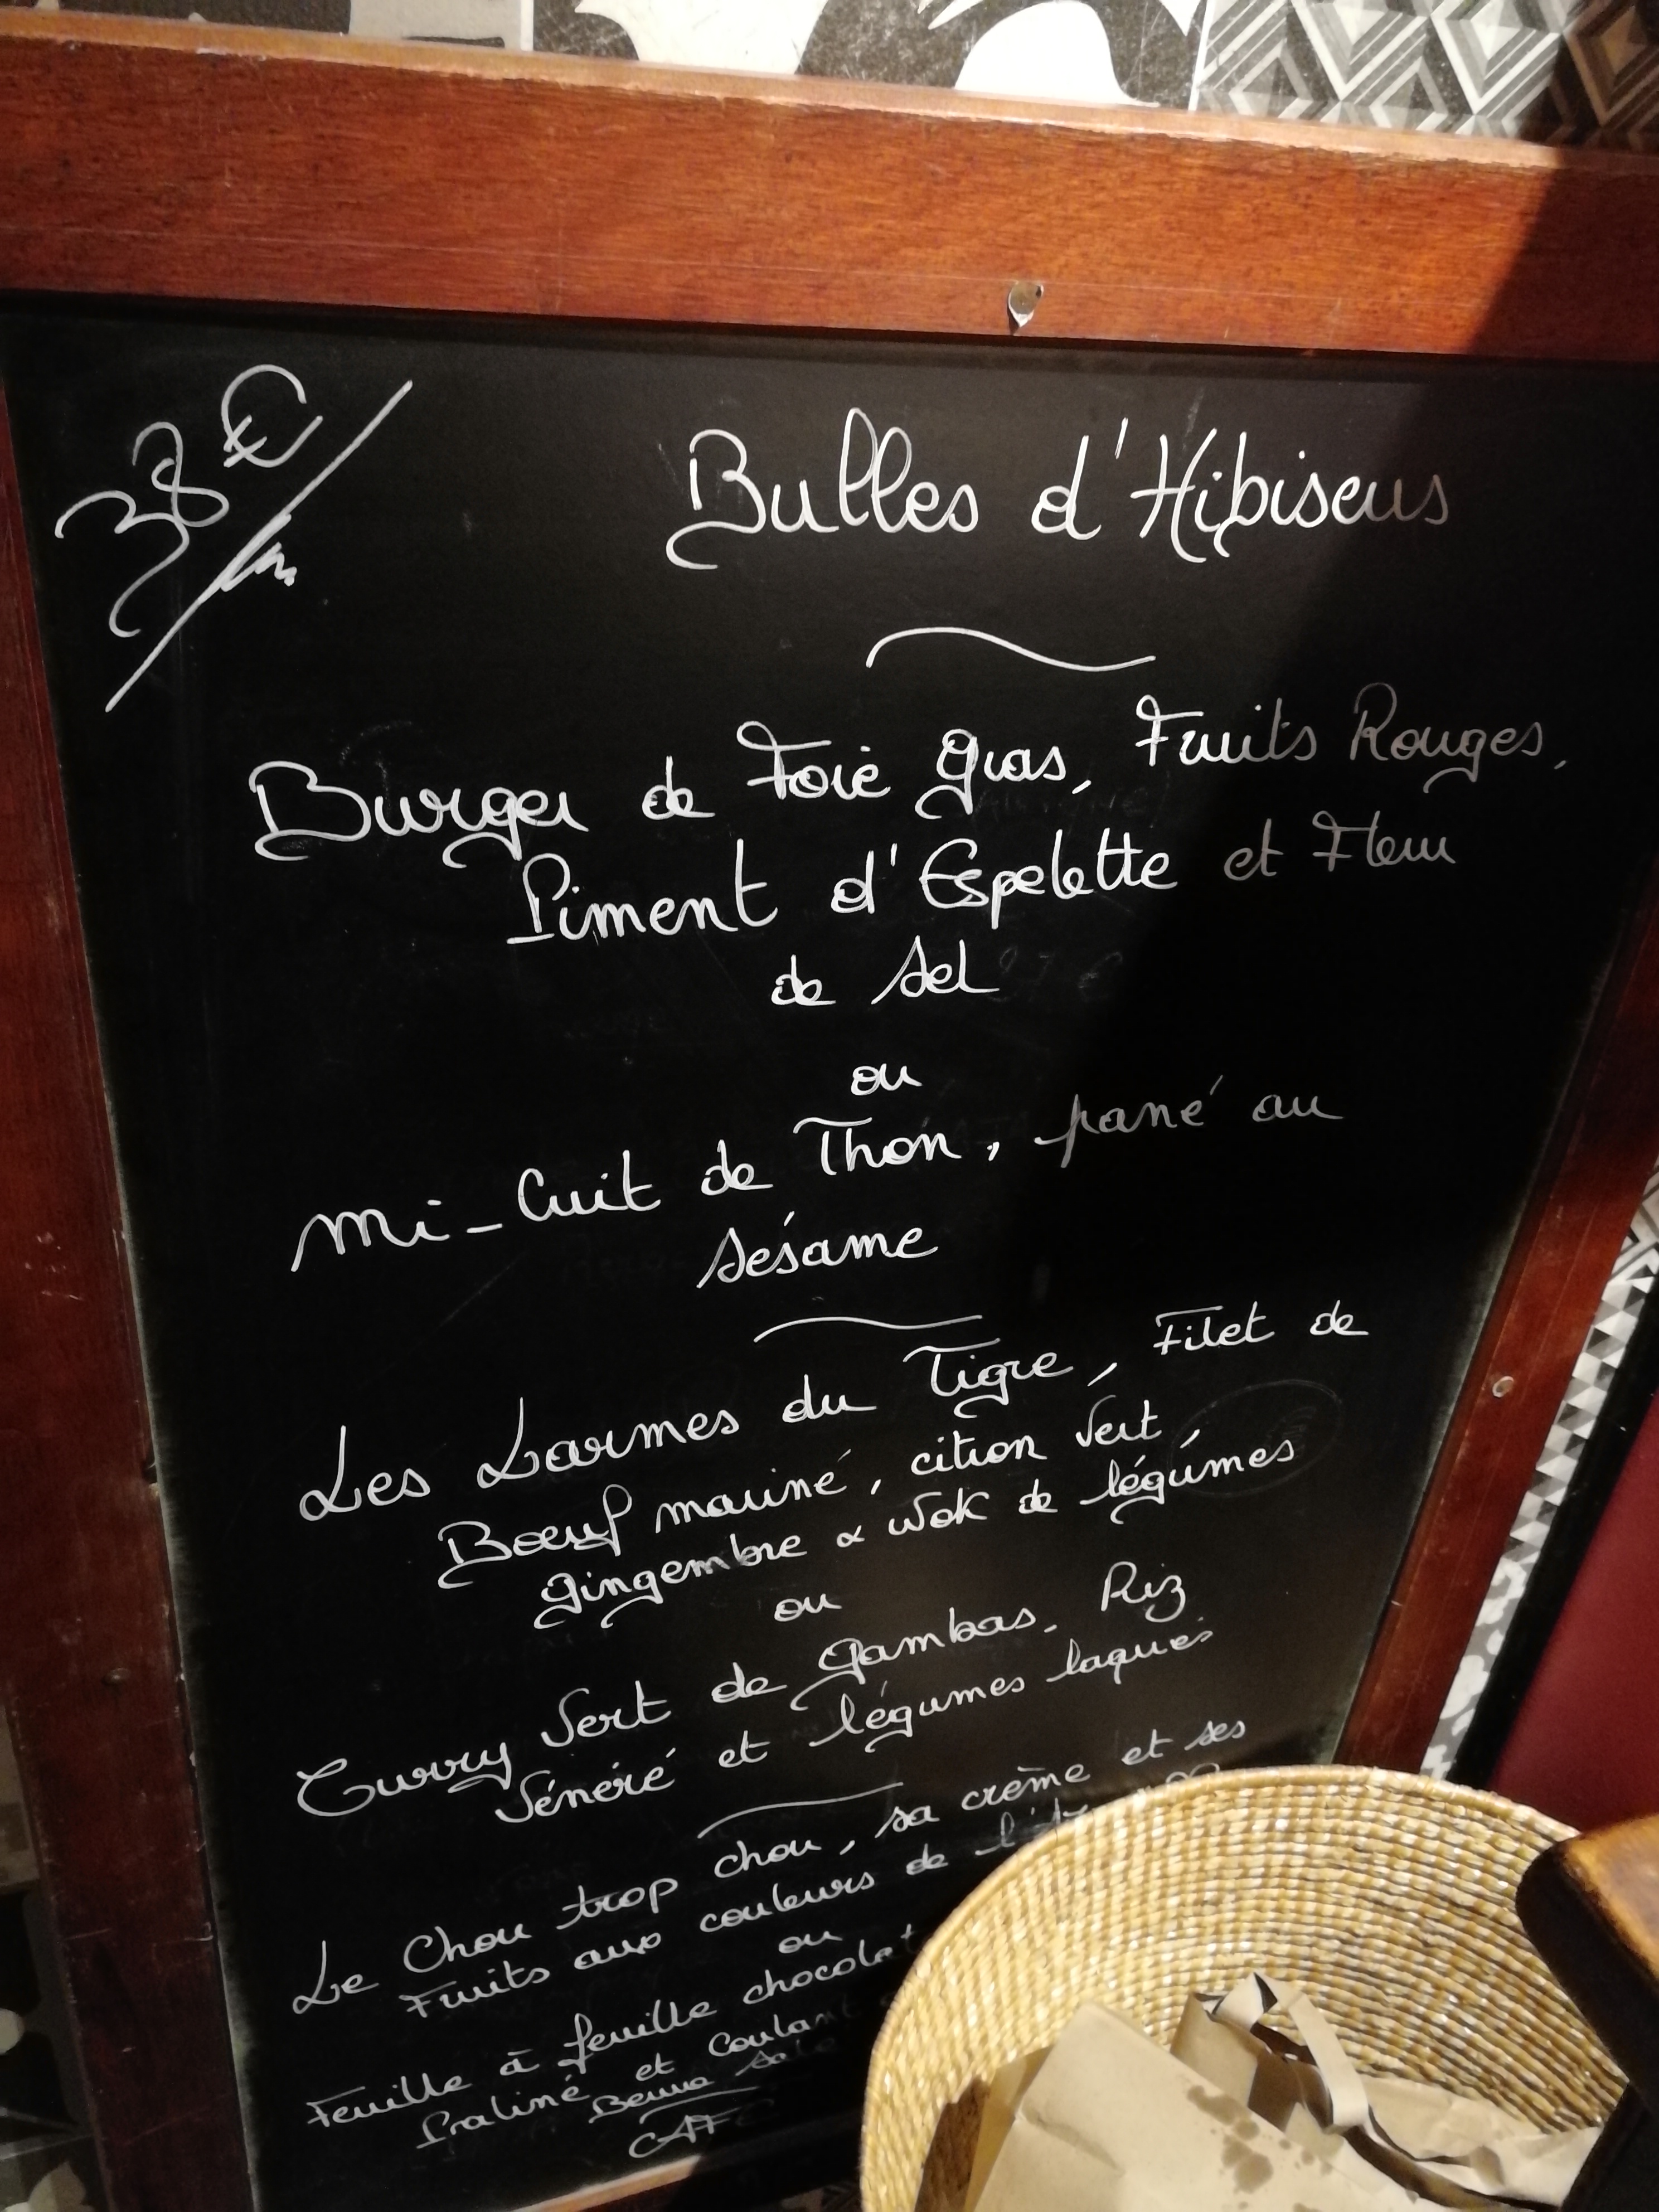 38€
Bulles d'Hibiscus
Burger de Foie Gras, Fruits Rouges,
Piment d'Espelette et Fleur
de Sel
ou
Mi-Cuit de Thon, pané au
Sésame
Les Larmes du Tigre, Filet de
Boeuf mariné, citron Vert,
gingembre & Wok de légumes
ou
Curry Vert de gambas. Riz
Vénéré et légumes laqués
Le Chou trop chou, sa crème et ses
Fruits aux couleurs de
ou
Feuille à feuille chocolat
Praliné et Coulant
Beurre
CAFE